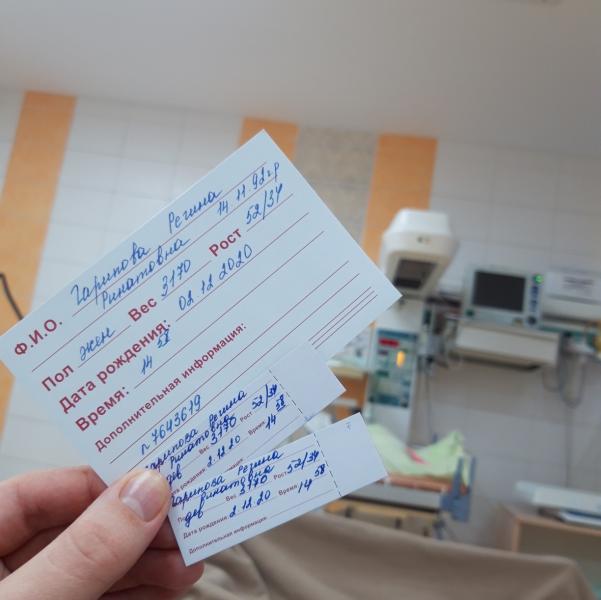 Ф.И.О. Гарипова Регина
Ринатовна 14.11.92г.р
Пол жен Вес 3170 Рост 52/34
Дата рождения: 02.12.2020
Время: 14 58
Дополнительная информация:
п 7643619
Гарипова Регина
Ринатовна
дев Вес 3170 Рост 52/34
Дата рождения 2.12.20 Время 14 58
Гарипова Регина
Ринатовна
дев Вес 3170 Рост 52/34
Дата рождения 2.12.20 Время 14 58
Дополнительная информация